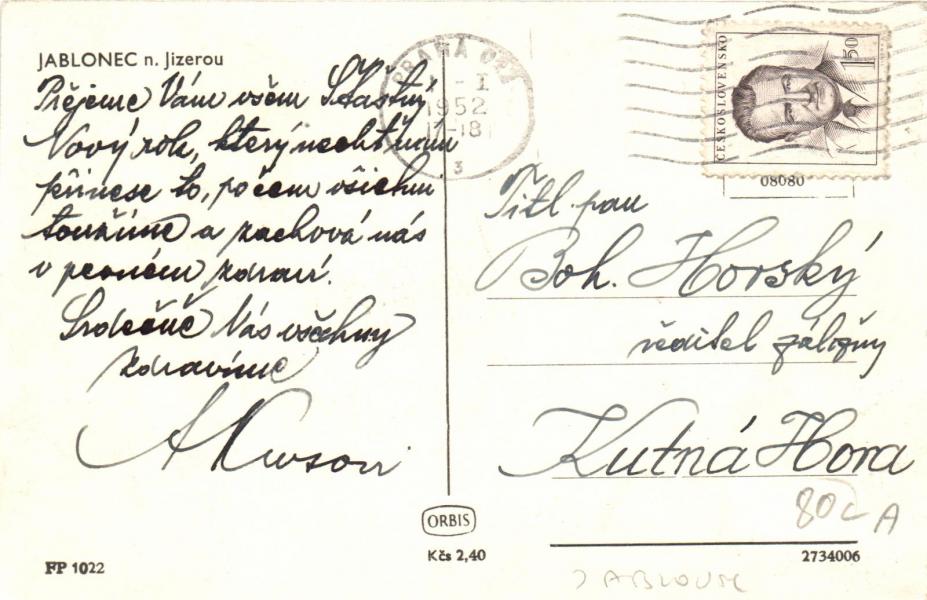 JABLONEC n. Jizerou
Přejeme Vám všem Šťastný
Nový rok, který nechť nám
přinese to, po čem všichni
toužíme a zachová nás
v pevném zdraví.
Srdečně Vás všechny
zdravíme
PRAHA
I
1952
-18
3
ČESKOSLOVENSKO
1.50
08080
Titl. pan
Boh. Horský
ředitel záložny
Kutná Hora
80
A
ORBIS
Kčs 2,40
FP 1022
2734006